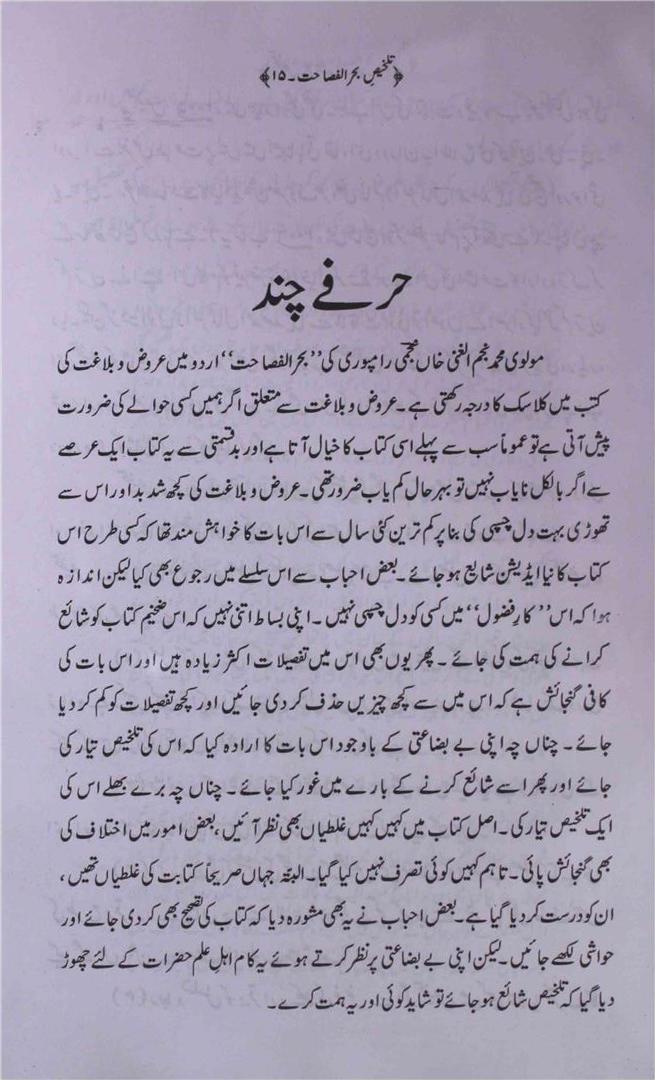 ﴿تلخیصِ بحر الفصاحت۔۱۵﴾
حرفے چند
مولوی محمد نجم الغنی خاں نجمی رامپوری کی ’’بحر الفصاحت‘‘ اردو میں عروض و بلاغت کی
کتب میں کلاسک کا درجہ رکھتی ہے۔ عروض و بلاغت سے متعلق اگر ہمیں کسی حوالے کی ضرورت
پیش آتی ہے تو عموماً سب سے پہلے اسی کتاب کا خیال آتا ہے اور بدقسمتی سے یہ کتاب ایک عرصے
سے اگر بالکل نایاب نہیں تو بہر حال کم یاب ضرور تھی۔ عروض و بلاغت کی کچھ شدبد اور اس سے
تھوڑی بہت دل چسپی کی بنا پر کم ترین کئی سال سے اس بات کا خواہش مند تھا کہ کسی طرح اس
کتاب کا نیا ایڈیشن شایع ہو جائے۔ بعض احباب سے اس سلسلے میں رجوع بھی کیا لیکن اندازہ
ہوا کہ اس ’’کارِ فضول‘‘ میں کسی کو دل چسپی نہیں۔ اپنی بساط اتنی نہیں کہ اس ضخیم کتاب کو شائع
کرانے کی ہمت کی جائے۔ پھر یوں بھی اس میں تفصیلات اکثر زیادہ ہیں اور اس بات کی
کافی گنجائش ہے کہ اس میں سے کچھ چیزیں حذف کر دی جائیں اور کچھ تفصیلات کو کم کر دیا
جائے۔ چناں چہ اپنی بے بضاعتی کے باوجود اس بات کا ارادہ کیا کہ اس کی تلخیص تیار کی
جائے اور پھر اسے شائع کرنے کے بارے میں غور کیا جائے۔ چناں چہ برے بھلے اس کی
ایک تلخیص تیار کی۔ اصل کتاب میں کہیں کہیں غلطیاں بھی نظر آئیں، بعض امور میں اختلاف کی
بھی گنجائش پائی۔ تاہم کہیں کوئی تصرف نہیں کیا گیا۔ البتّہ جہاں صریحاً کتابت کی غلطیاں تھیں،
ان کو درست کر دیا گیا ہے۔ بعض احباب نے یہ بھی مشورہ دیا کہ کتاب کی تصحیح بھی کر دی جائے اور
حواشی لکھے جائیں۔ لیکن اپنی بے بضاعتی پر نظر کرتے ہوئے یہ کام اہلِ علم حضرات کے لئے چھوڑ
دیا گیا کہ تلخیص شائع ہو جائے تو شاید کوئی اور یہ ہمت کرے۔